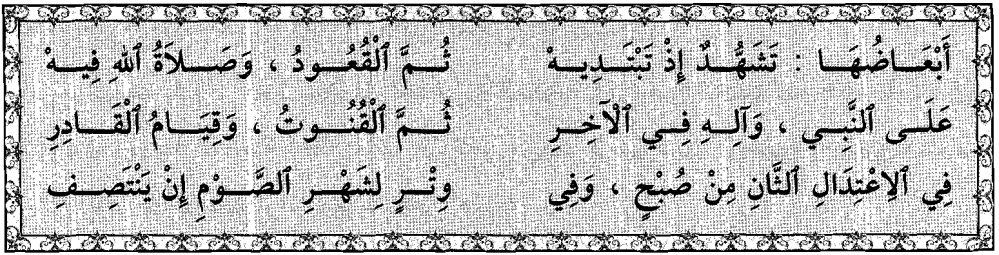 أَبْعَاضُهَا : تَشَهُّدٌ إِذْ تَبْتَدِيهْ ثُمَّ ٱلْقُعُودُ ، وَصَلاَةُ ٱللهِ فِيهْ
عَلَى ٱلنَّبِي ، وَآلِهِ فِي ٱلْآخِرِ ثُمَّ ٱلْقُنُوتُ ، وَقِيَامُ ٱلْقَادِرِ
فِي ٱلِاعْتِدَالِ ٱلثَّانِ مِنْ صُبْحٍ ، وَفِي وِتْرٍ لِشَهْرِ ٱلصَّوْمِ إِنْ يَنْتَصِفِ